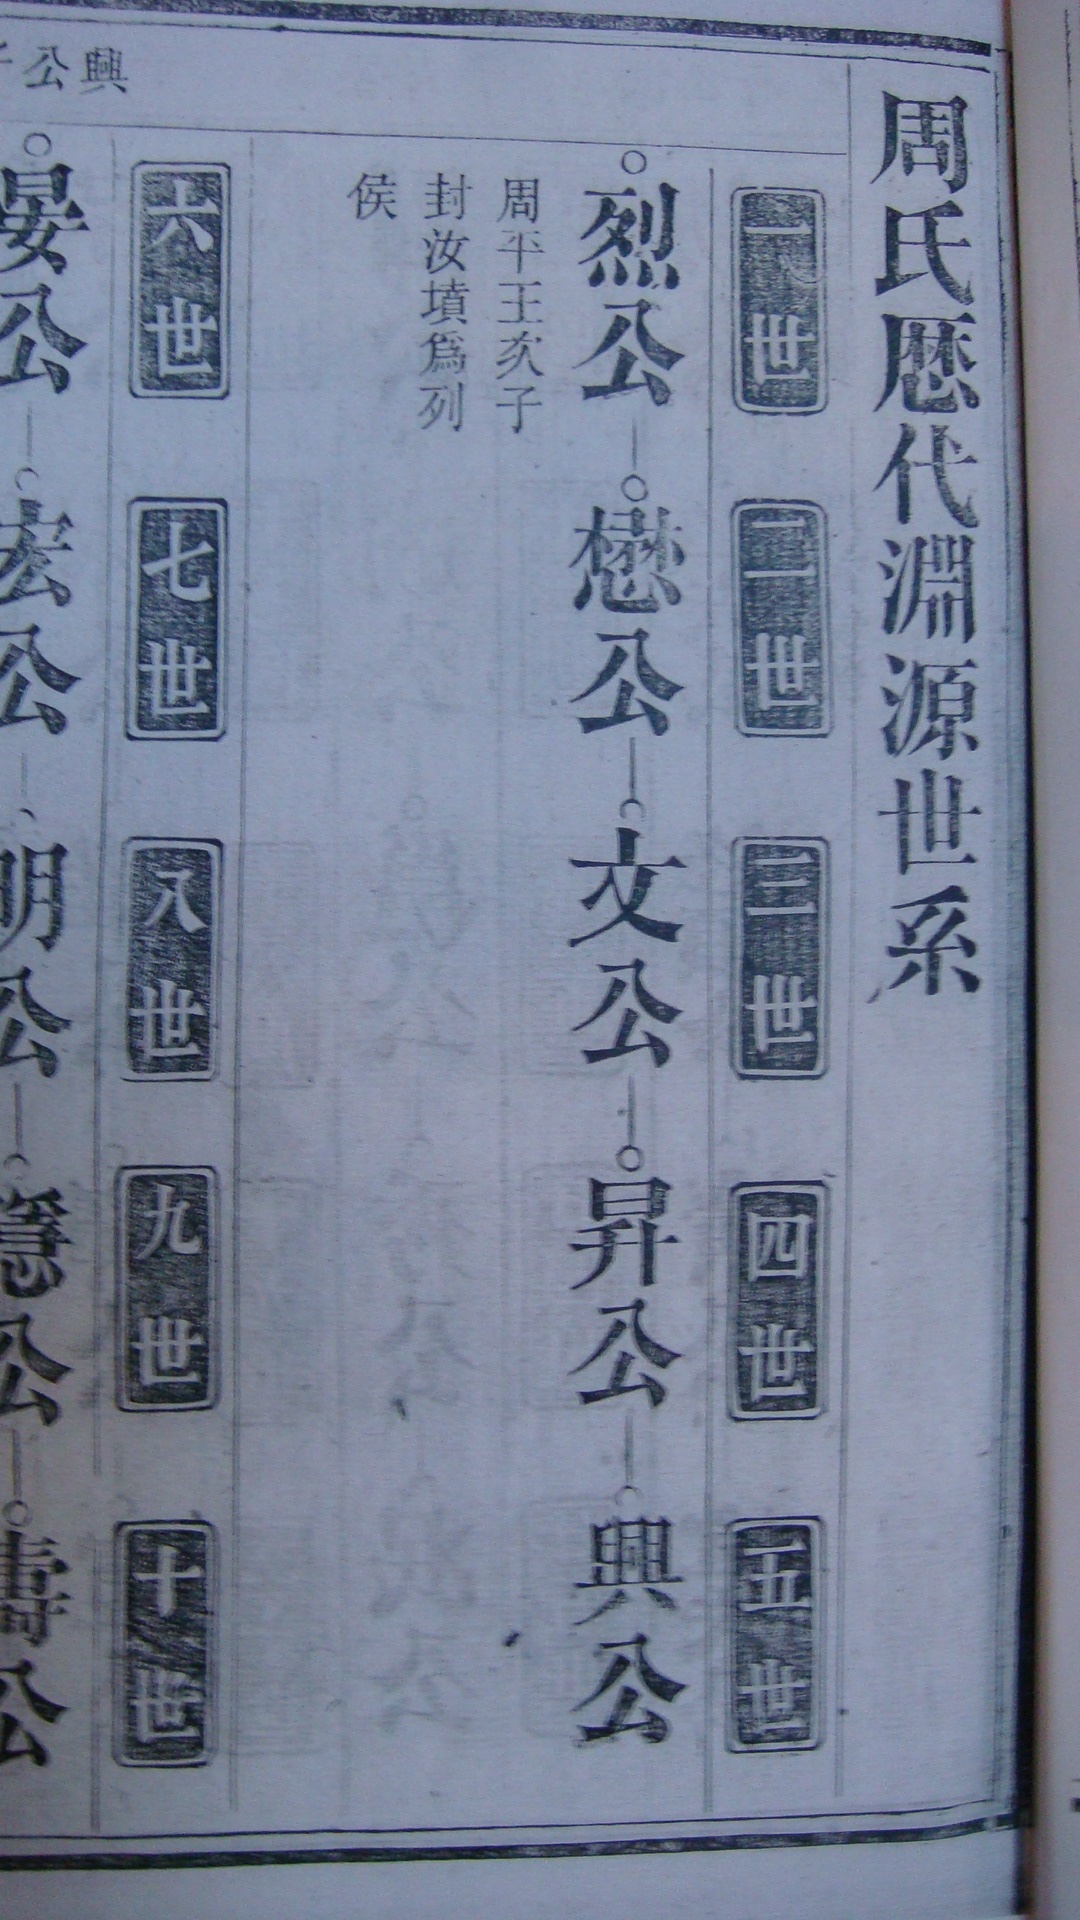 周氏歷代淵源世系
一世
二世
三世
四世
五世
烈公
懋公
文公
昇公
興公
周平王次子
封汝墳爲列
侯
六世
七世
八世
九世
十世
興公
晏公
宏公
明公
隱公
公